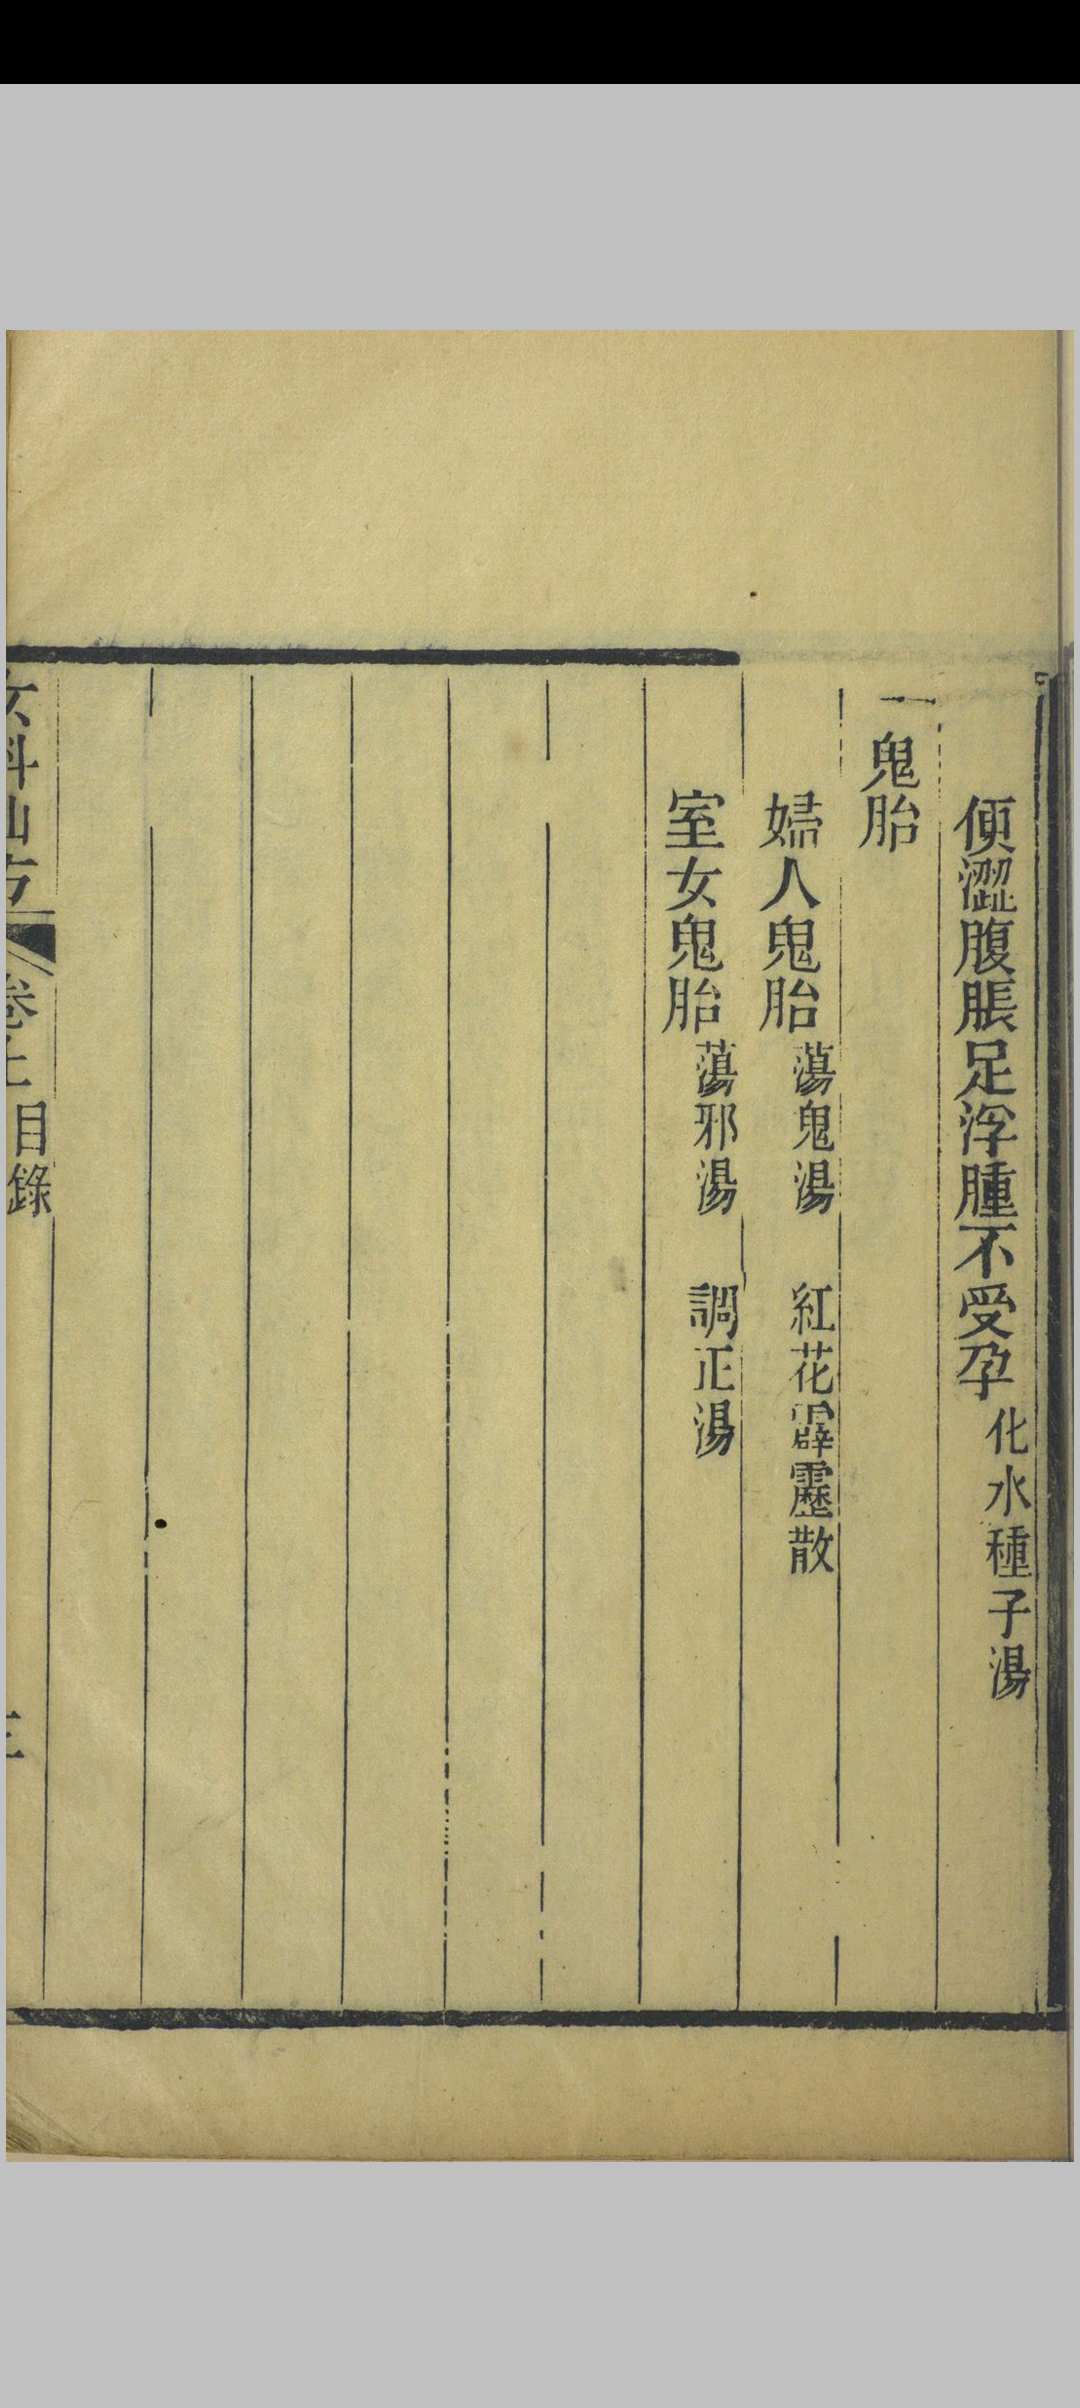 便澀腹脹足浮腫不受孕 化水種子湯
一鬼胎
婦人鬼胎 蕩鬼湯 紅花霹靂散
室女鬼胎 蕩邪湯 調正湯
女科仙方 卷上 目錄 三